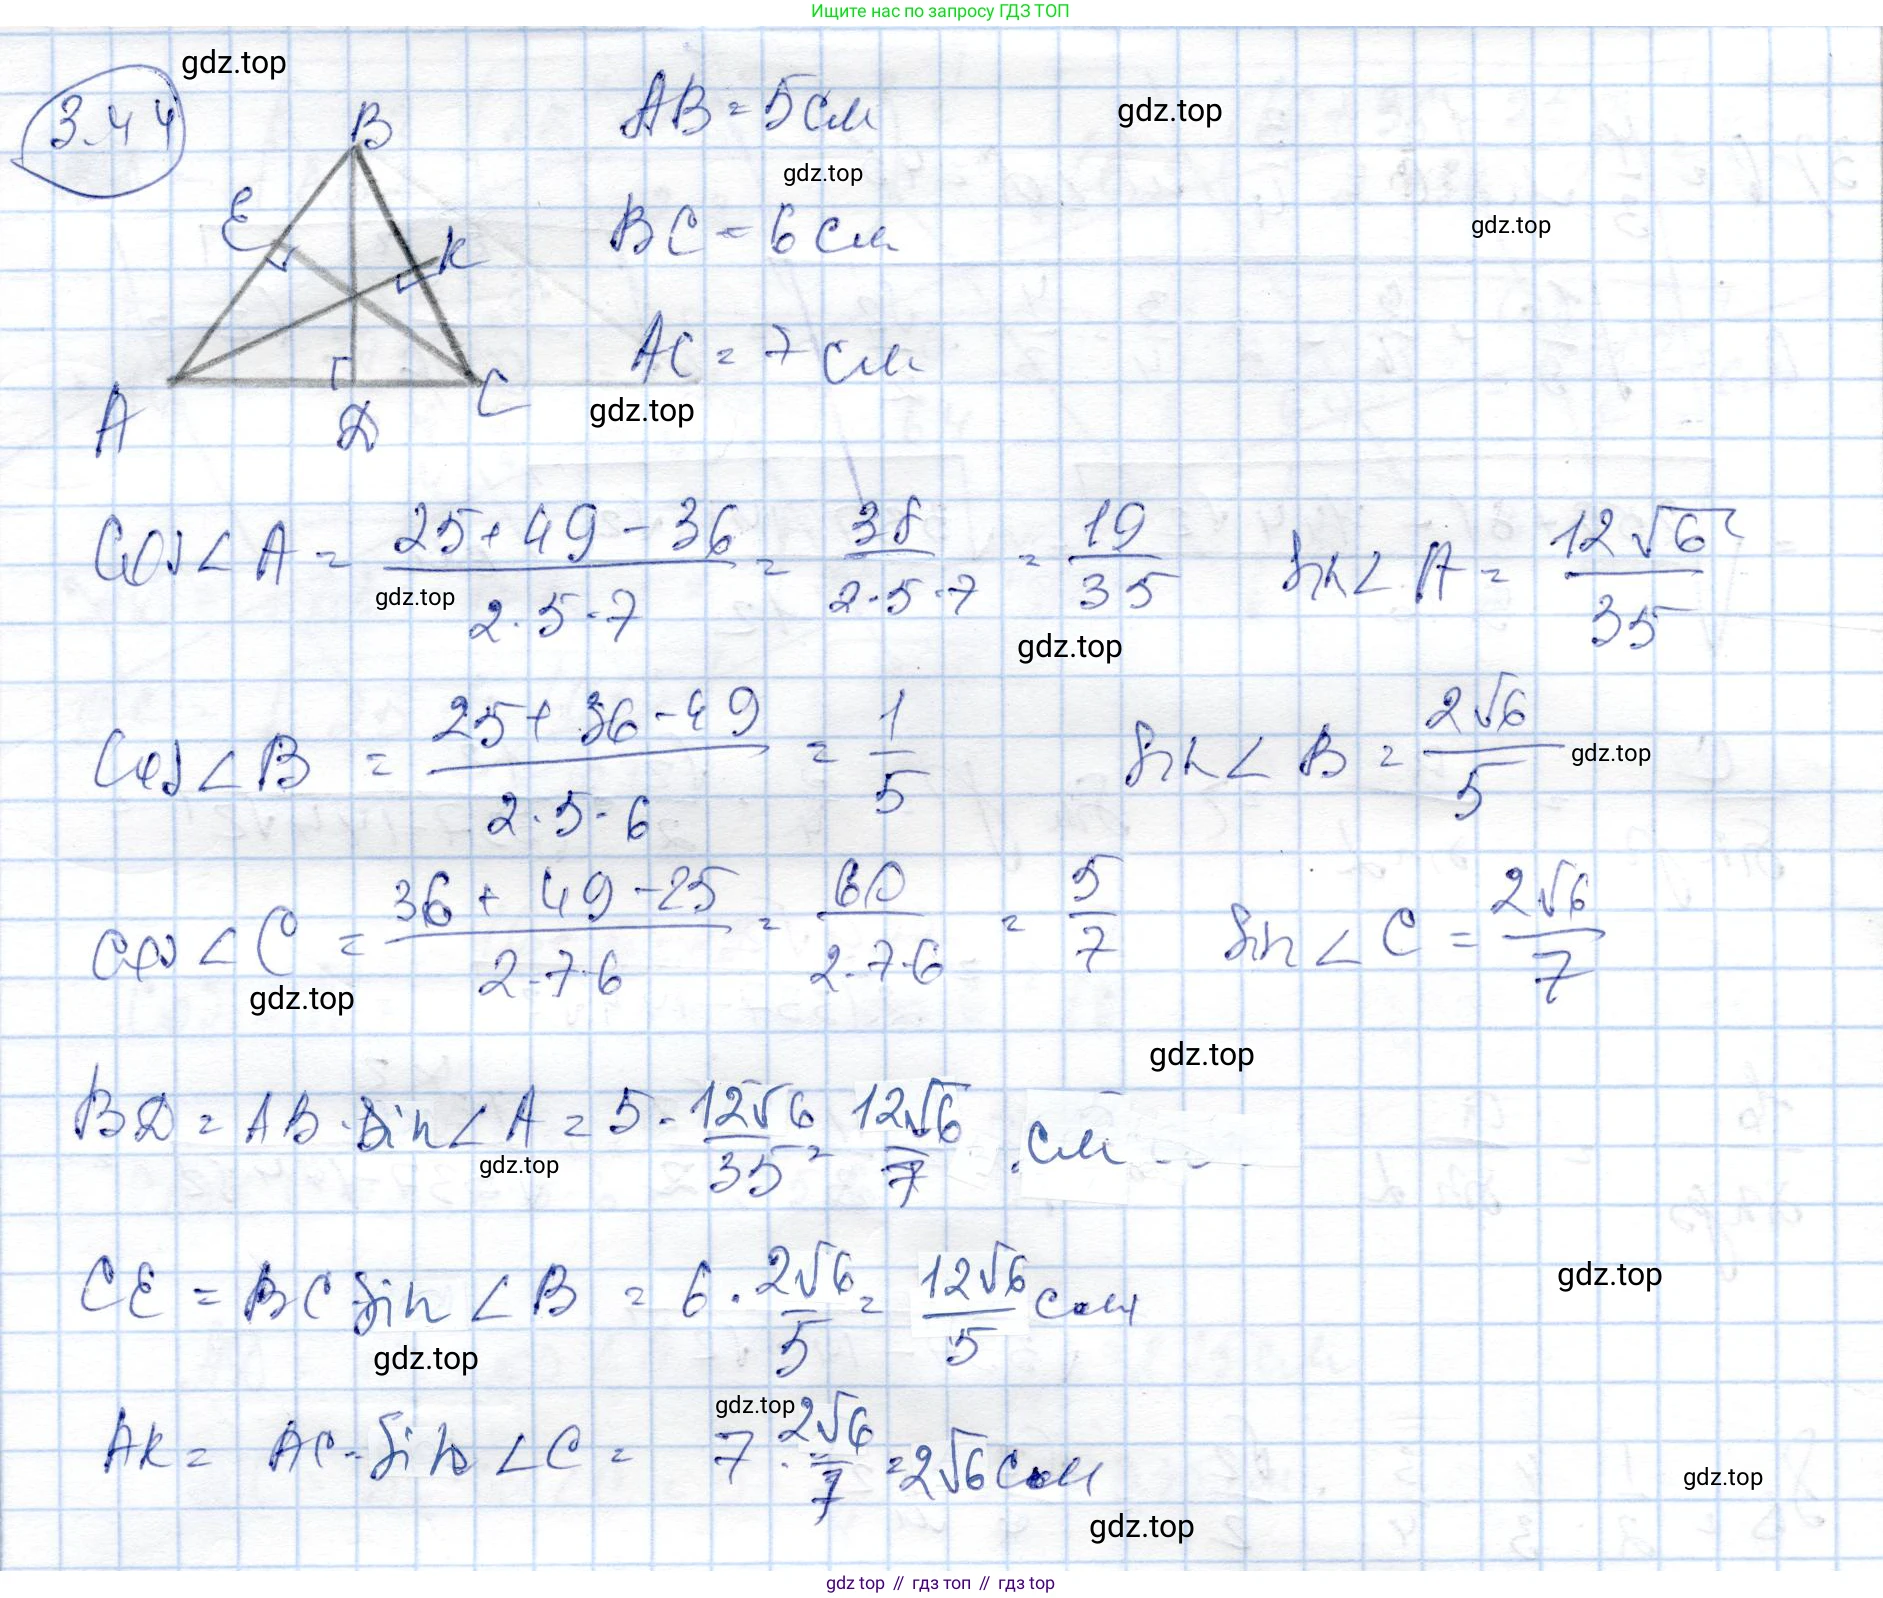 Ищите нас по запросу ГДЗ ТОП
gdz.top
3.44
B
AB = 5 см
gdz.top
gdz.top
E
K
BC = 6 см
gdz.top
AC = 7 см
A
D
C
gdz.top
cos∠A = (25+49-36)/(2·5·7) = 38/(2·5·7) = 19/35 sin∠A = 12√6/35
gdz.top
gdz.top
cos∠B = (25+36-49)/(2·5·6) = 1/5 sin∠B = 2√6/5
gdz.top
cos∠C = (36+49-25)/(2·7·6) = 60/(2·7·6) = 5/7 sin∠C = 2√6/7
gdz.top
gdz.top
BD = AB·sin∠A = 5·12√6/35 = 12√6/7 см
gdz.top
CE = BC sin∠B = 6·2√6/5 = 12√6/5 см
gdz.top
gdz.top
gdz.top
AK = AC·sin∠C = 7·2√6/7 = 2√6 см
gdz.top
gdz.top
gdz top // гдз топ // гдз top